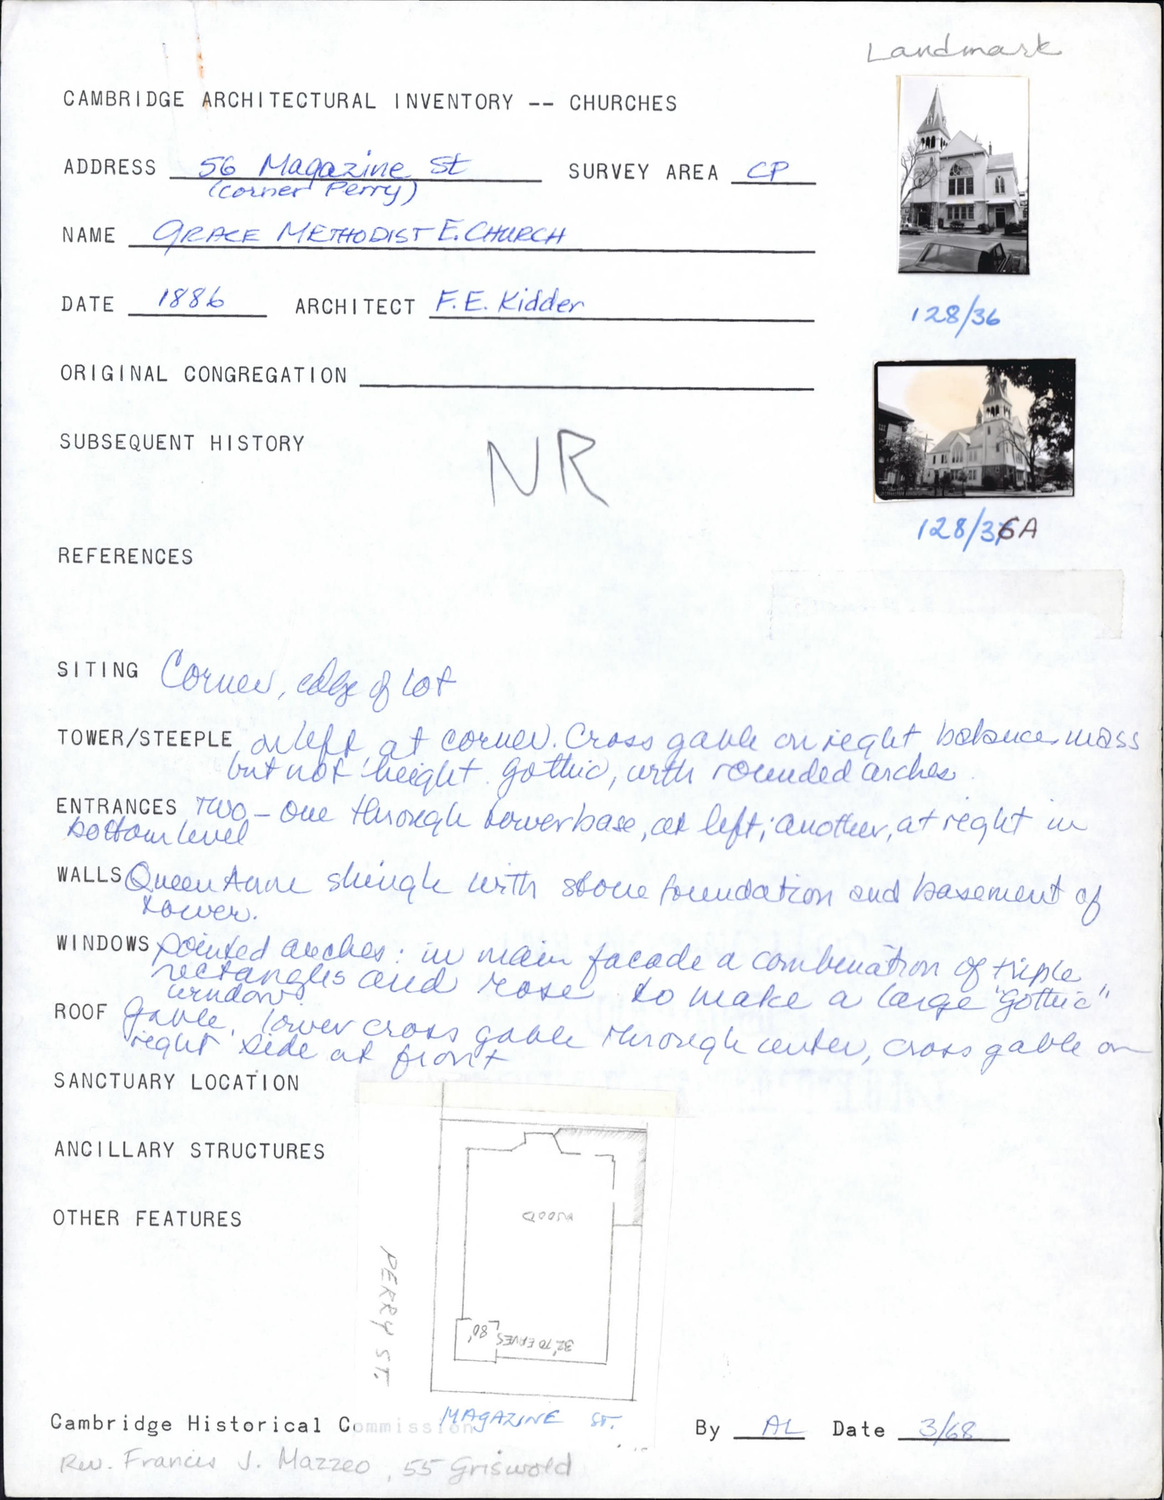 Landmark
CAMBRIDGE ARCHITECTURAL INVENTORY -- CHURCHES
ADDRESS 56 Magazine St SURVEY AREA CP
(corner Perry)
NAME GRACE METHODIST E. CHURCH
DATE 1886 ARCHITECT F. E. Kidder
128/36
ORIGINAL CONGREGATION
SUBSEQUENT HISTORY
NR
128/36A
REFERENCES
SITING Corner, edge of lot
TOWER/STEEPLE, on left, at corner. Cross gable on right balances mass
but not height. Gothic, with rounded arches.
ENTRANCES Two - one through tower base, at left; another, at right in
bottom level
WALLS Queen Anne shingle with stone foundation and basement of
tower.
WINDOWS pointed arches: in main facade a combination of triple
rectangles and rose to make a large "gothic"
window.
ROOF gable, lower cross gable through center, cross gable on
right side at front
SANCTUARY LOCATION
ANCILLARY STRUCTURES
OTHER FEATURES
PERRY ST.
80'
32' TO EAVES
MAGAZINE ST.
Cambridge Historical Commission By AL Date 3/68
Rev. Francis J. Mazzeo, 55 Griswold